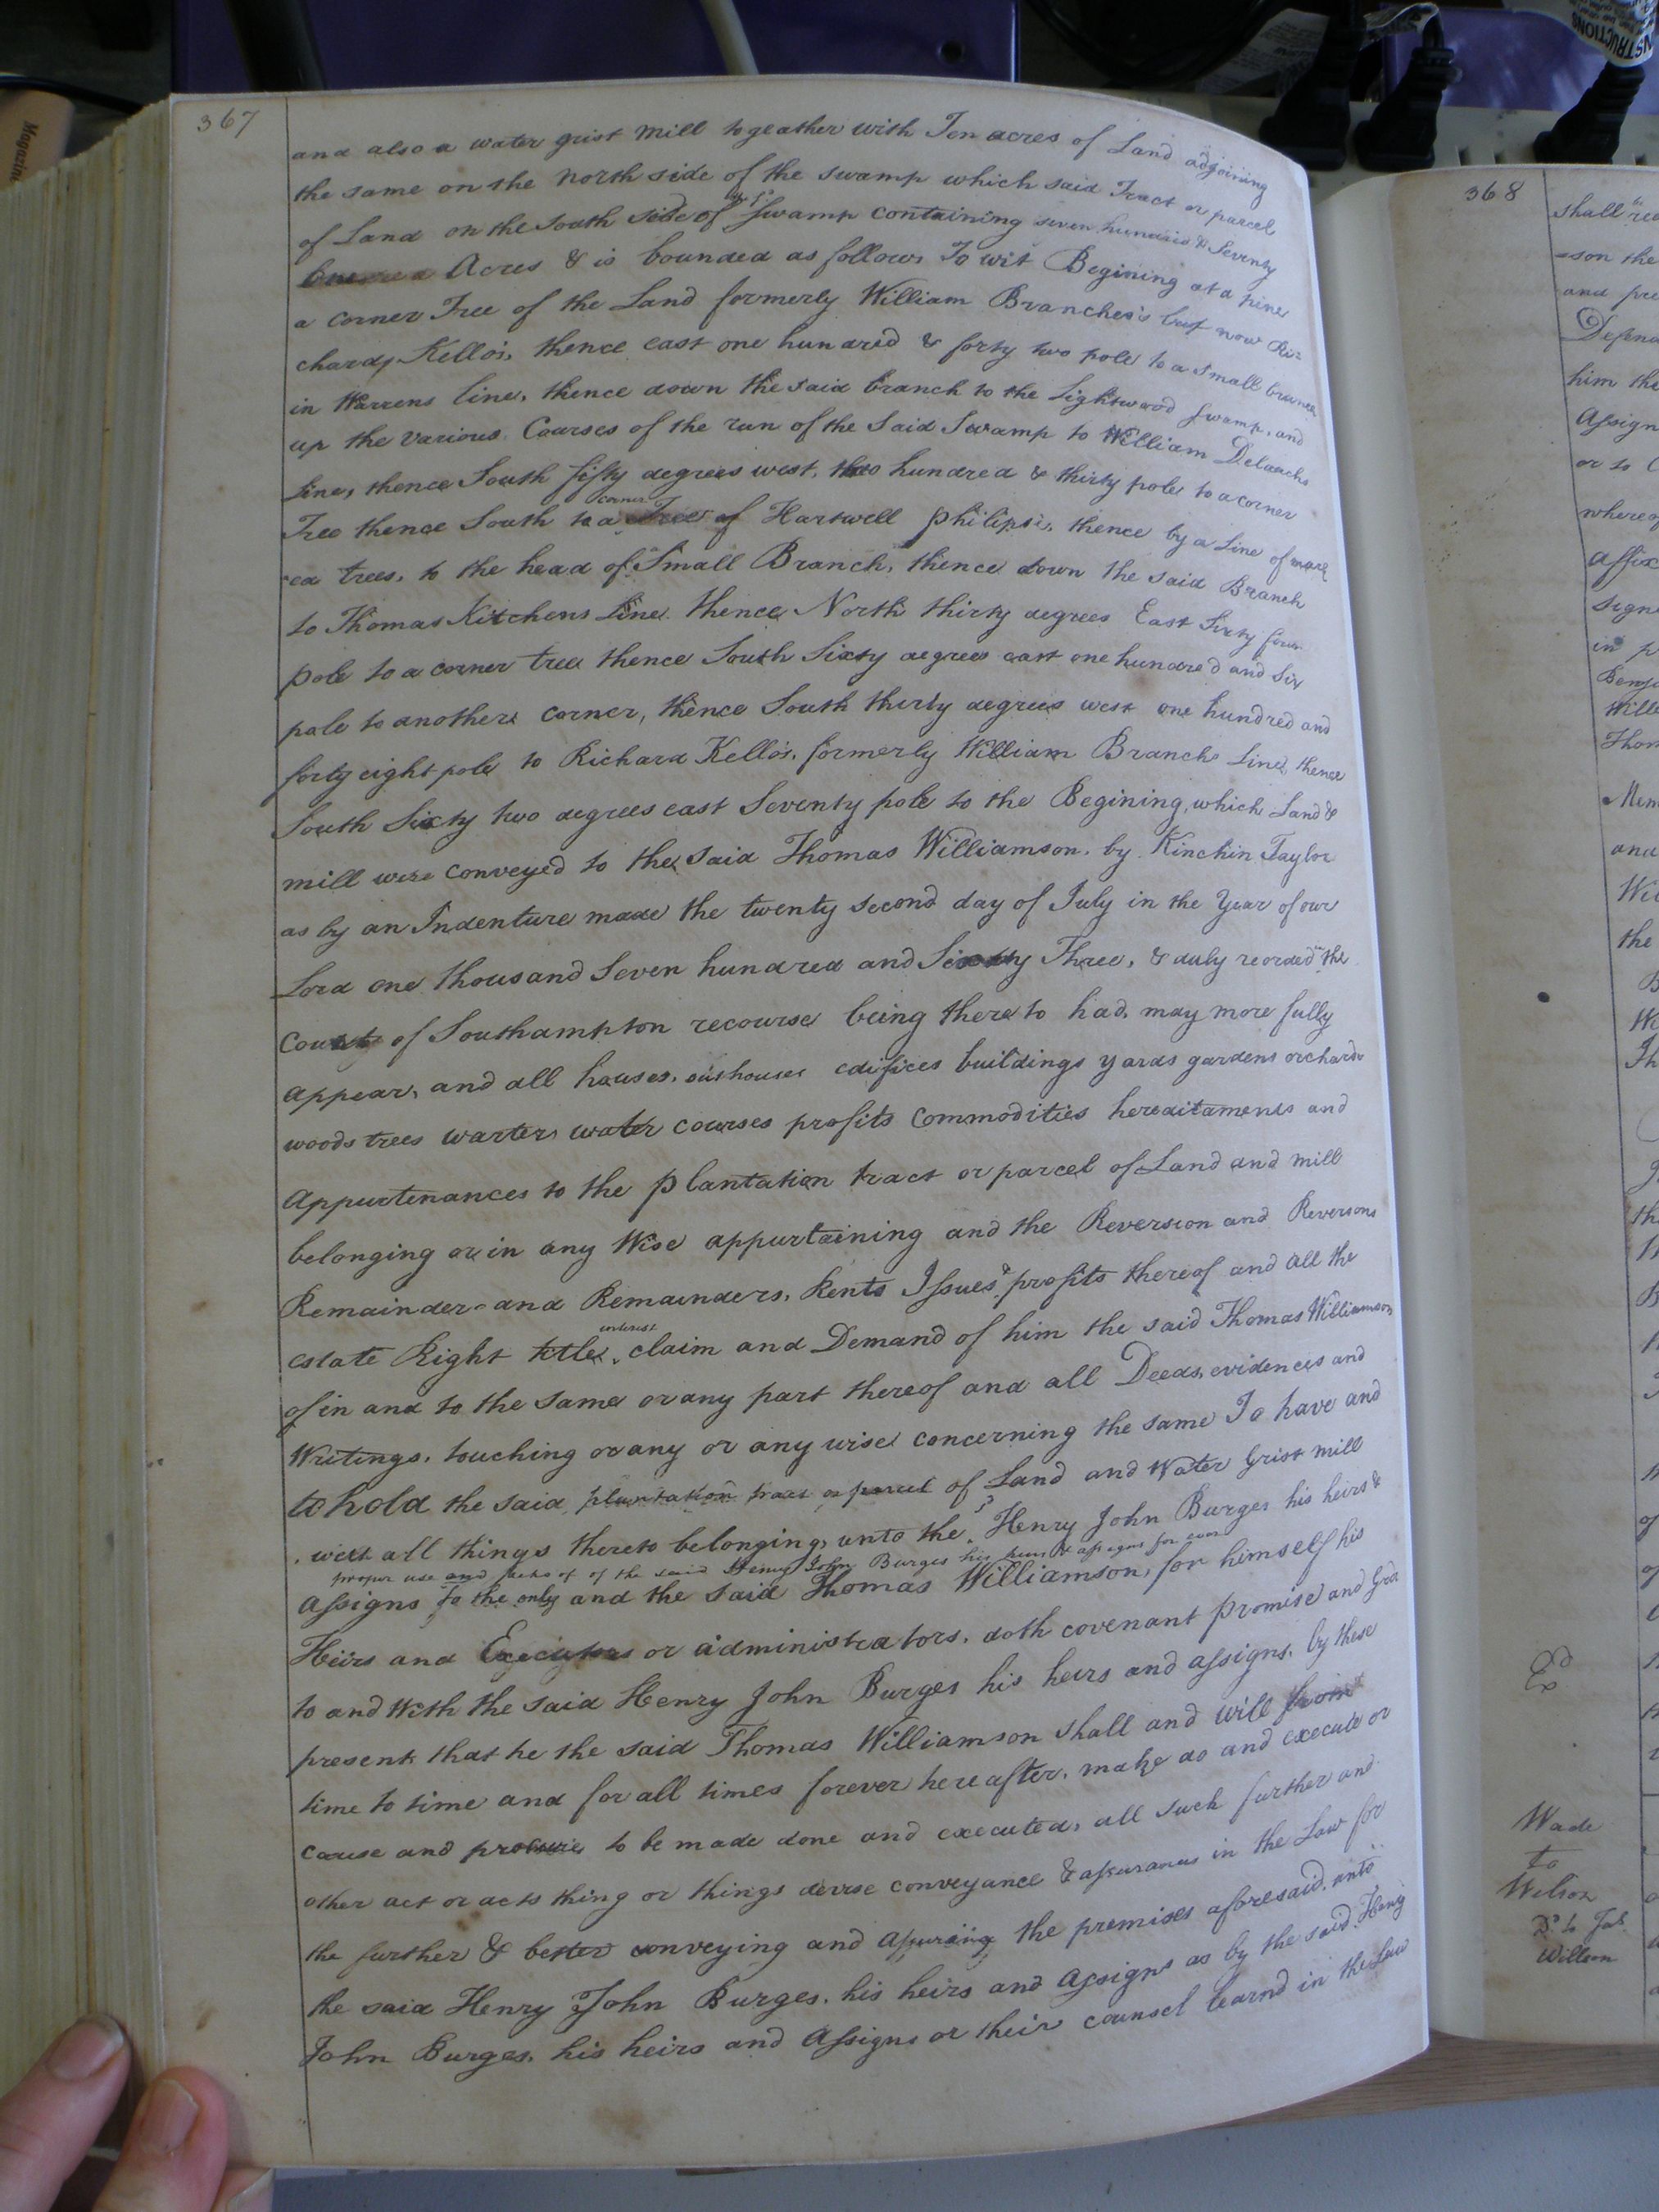 367
and also a water grist mill togeather with Ten acres of Land adjoining
the same on the north side of the swamp which said Tract or parcel
of Land on the South Side of the sd. Swamp Containing seven hundred & Seventy
Acres & is bounded as follows To wit Begining at a pine
a corner Tree of the Land formerly William Branches's but now Ri=
chard Kello's, thence east one hundred & forty two pole to a small branch
in Warrens line, thence down the said branch to the Lightwood Swamp, and
up the various Courses of the run of the Said Swamp to William Deloachs
Line, thence South fifty degrees west, two hundred & thirty pole to a corner
Tree thence South to a corner of Hartwell philips's, thence by a Line of mark
ed trees, to the head of a Small Branch, thence down the said Branch
to Thomas Kitchens Line thence North thirty degrees East Sixty four
pole to a corner tree thence South Sixty degrees east one hundred and Six
pole to another corner, thence South thirty degrees west one hundred and
forty eight pole to Richard Kello's, formerly William Branchs Line, thence
South Sixty two degrees east Seventy pole to the Begining, which Land &
mill were conveyed to the said Thomas Williamson, by Kinchin Taylor
as by an Indenture made the twenty second day of July in the Year of our
Lord one thousand Seven hundred and Sixty Three, & duly reorded in the
Court of Southampton recourse being there to had, may more fully
appear, and all houses, outhouses edifices buildings yards gardens orchards
woods trees warters water courses profits Commodities hereditaments and
Appurtenances to the plantation tract or parcel of Land and mill
belonging or in any Wise appurtaining and the Reversion and Reversons
Remainder and Remainders, Rents Issues & profits thereof and all the
estate Right title, interest claim and Demand of him the said Thomas Williamson
of in and to the same or any part thereof and all Deeds, evidences and
Writings, touching or any or any wise concerning the same To have and
to hold the said plantation tract or parcel of Land and Water Grist mill
with all things thereto belonging, unto the sd. Henry John Burges his heirs &
proper use and of of the said Henry John Burges his heirs & assigns for ever
assigns to the only and the said Thomas Williamson, for himself his
Heirs and Executors or administrators, doth covenant promise and Gra
to and With the said Henry John Burges his heirs and assigns, by these
present that he the said Thomas Williamson shall and will from
time to time and for all times forever hereafter, make do and execute or
cause and procure to be made done and executed, all such further and
other act or acts thing or things devise conveyance & assurances in the Law for
the further & better conveying and assuring the premises aforesaid, unto
the said Henry John Burges, his heirs and assigns as by the said Henry
John Burges, his heirs and assigns or their counsel learnd in the Law
368
shall
son the
and pre
Defend
him the
Assign
or to
whereof
affix
Signe
in p
Benj
Will
Thom
Mem
and
Wil
the
Wade
to
Wilson
Do to Jas.
Willson
Magazine
INSTRUCTIONS